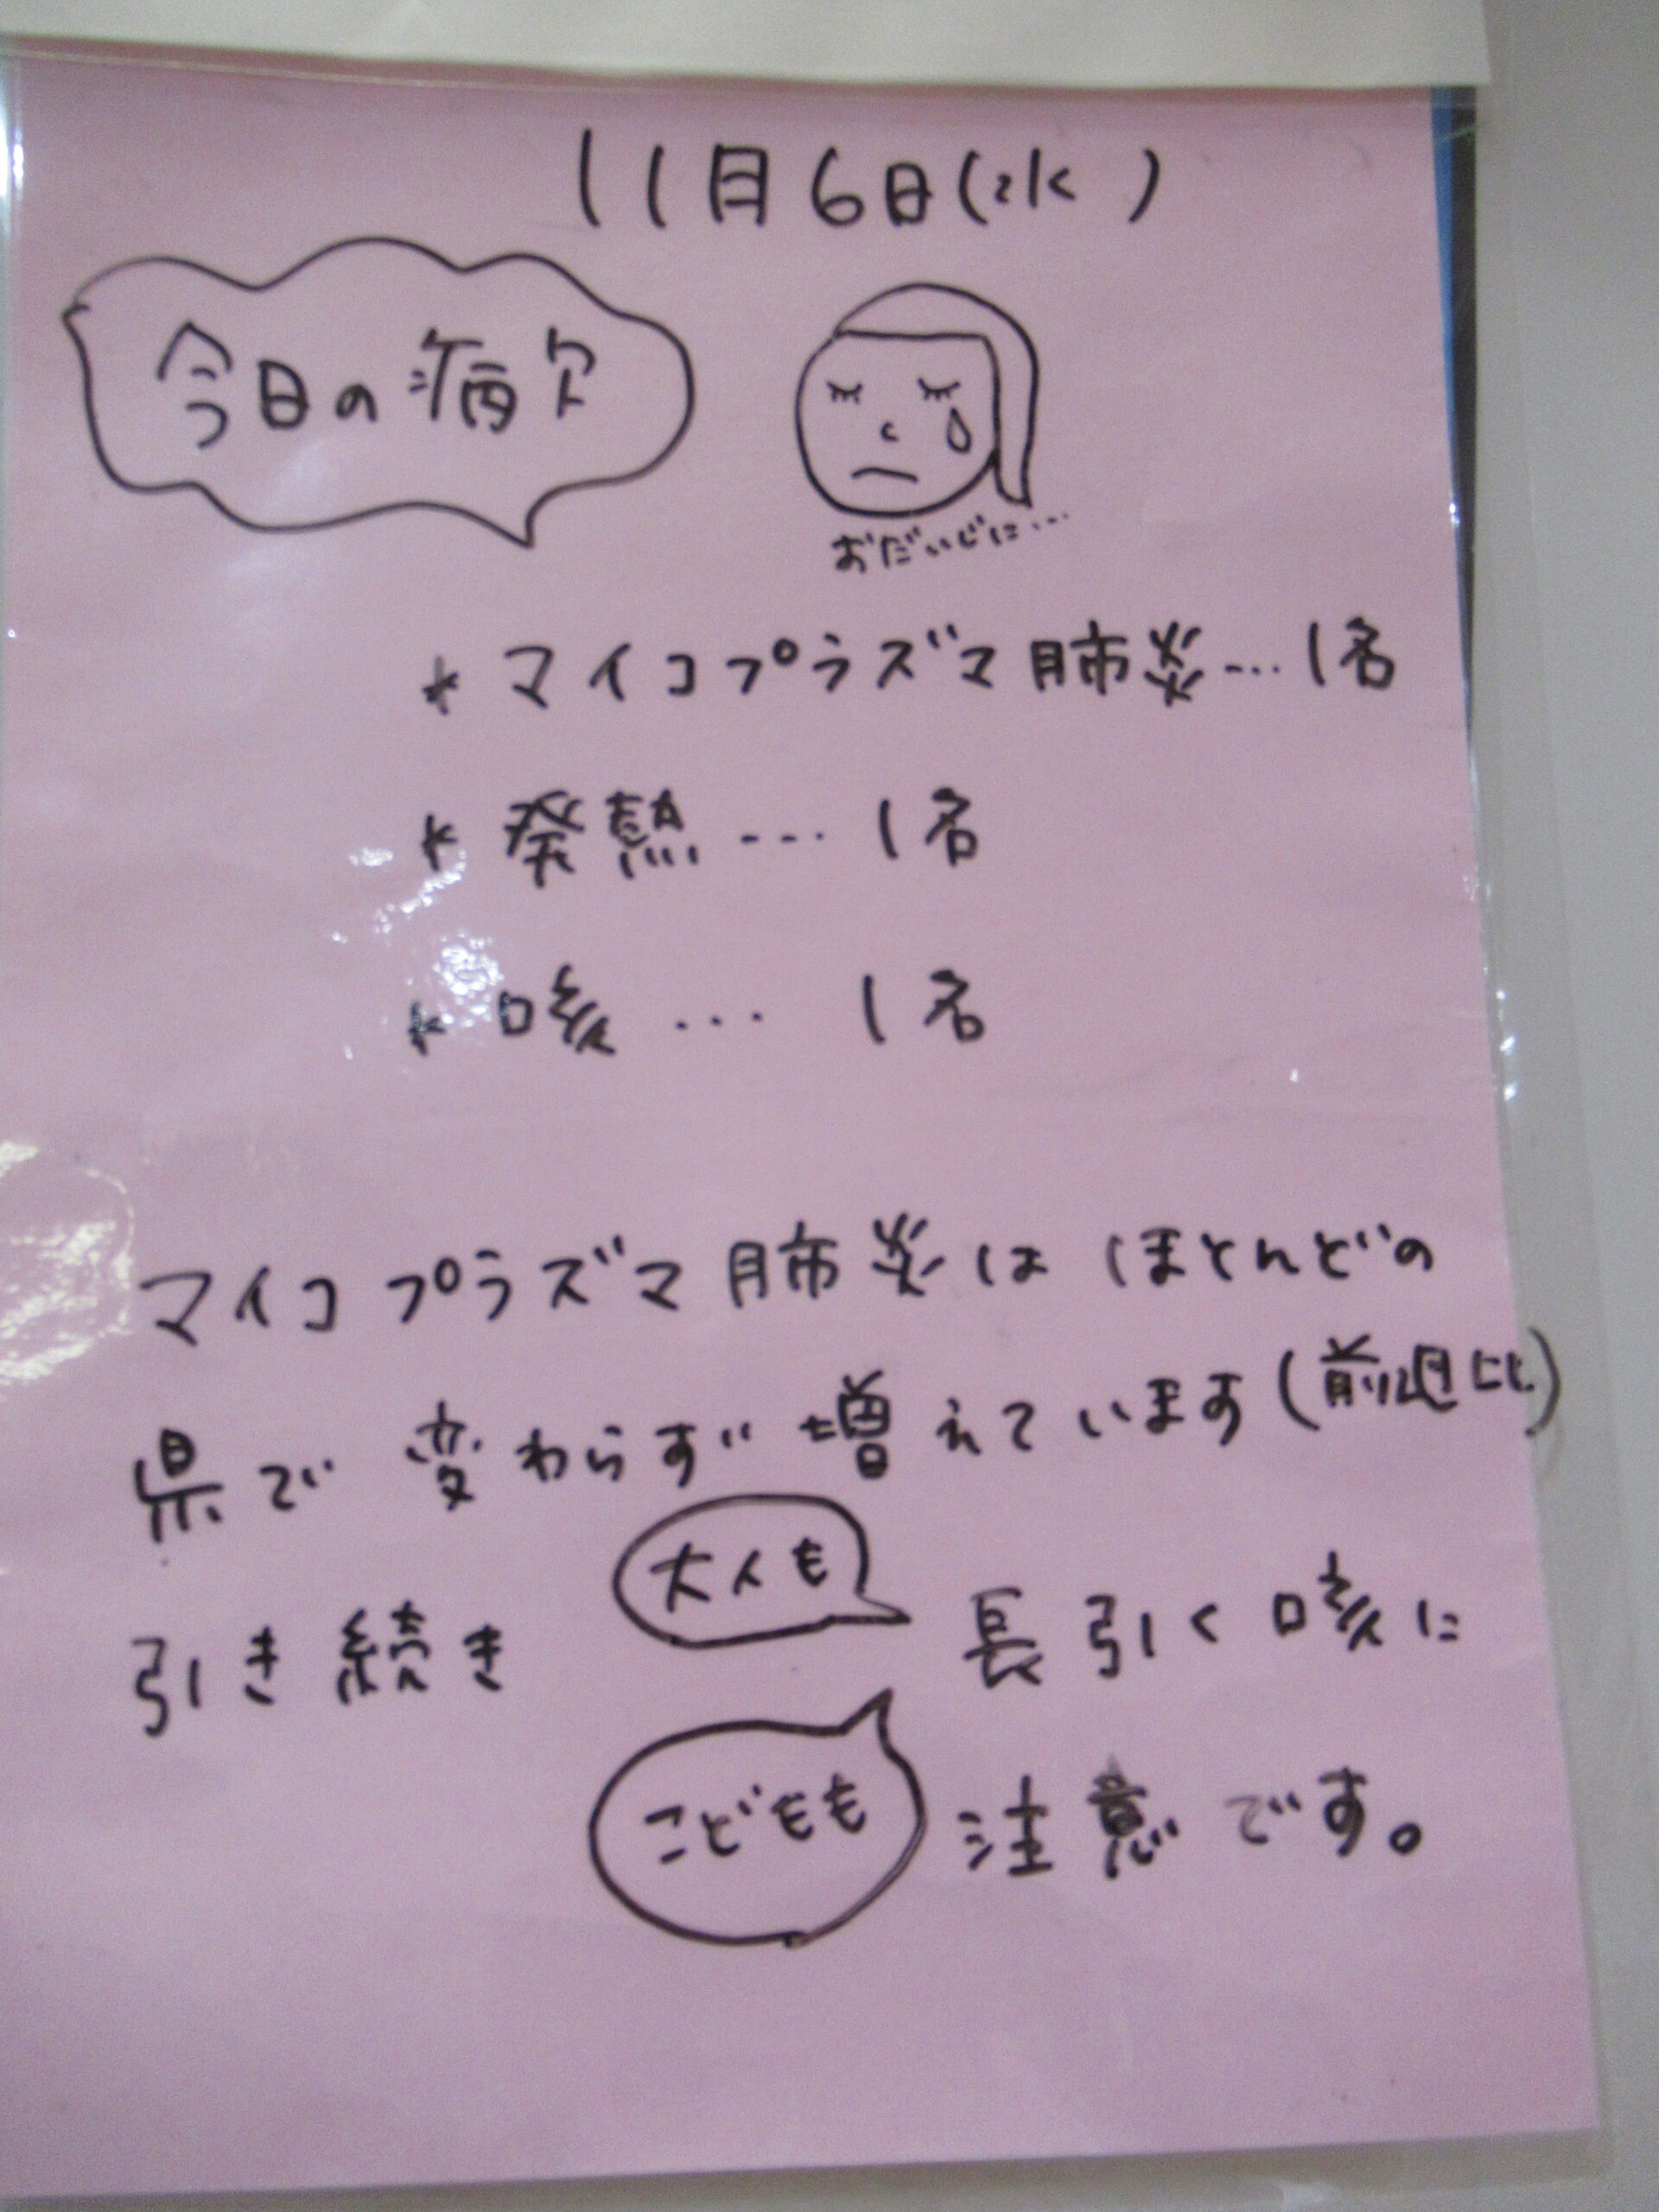 11月6日(水)
今日の病欠
おだいじに…
* マイコプラズマ肺炎…1名
* 発熱…1名
* 咳…1名
マイコプラズマ肺炎はほとんどの
県で変わらず増えています(前週比)
大人も
引き続き 長引く咳に
こどもも 注意です。